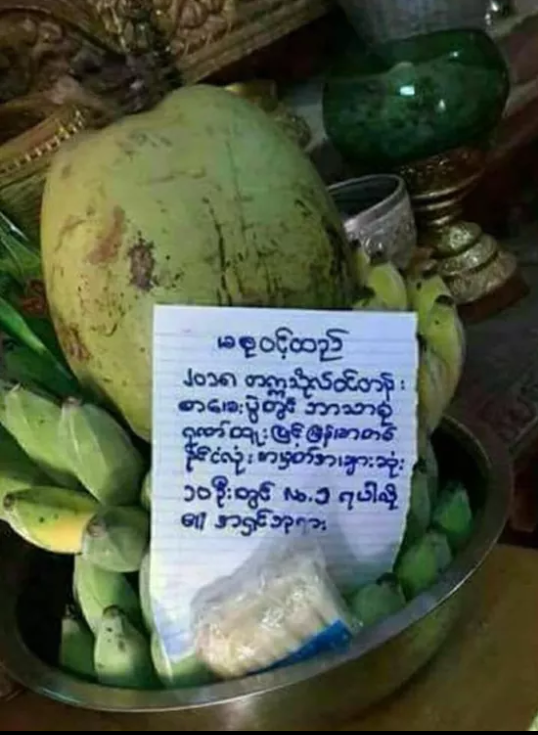 မစုဝင့်ထည်
၂၀၁၈ တက္ကသိုလ်ဝင်တန်း
စာမေးပွဲတွင် ဘာသာစုံ
ဂုဏ်ထူးဖြင့် မြန်မာတစ်
နိုင်ငံလုံး အမှတ်အများဆုံး
၁၀ ဦးတွင် No.၁ ရပါလို
၏ အရှင်ဘုရား